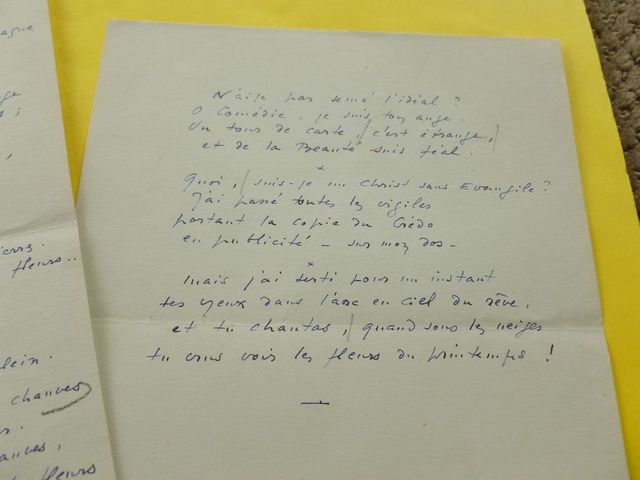 agne
ge
s ;
fleurs..
lein.
chauves
ances,
fleurs
N'ai-je pas semé l'idéal ?
O Comédie, je suis ton ange.
Un tour de carte, c'est étrange,
et de la Beauté suis féal.
*
Quoi, suis-je un Christ sans Evangile ?
J'ai passé toutes les vigiles
portant la copie du Crédo
en publicité - sur mon dos -
*
Mais j'ai serti pour un instant
tes yeux dans l'arc en ciel du rêve,
et tu chantas, quand sous les neiges
tu crus voir les fleurs du printemps !